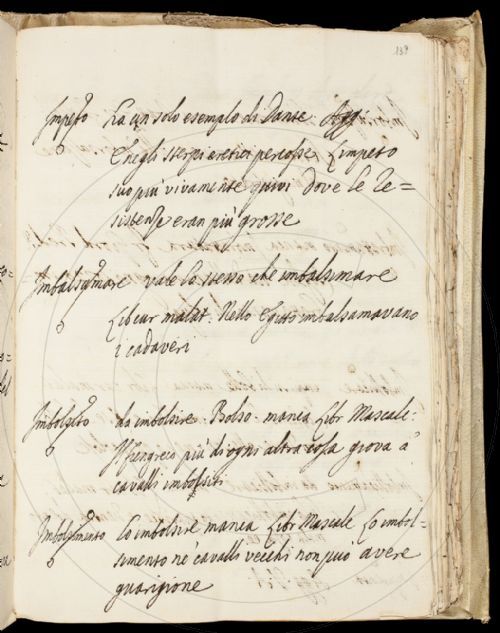 139
Impeto Ha un solo esempio di Dante. Agg:
E negli sterpi eretici percosse L'impeto
suo più vivamente quivi Dove le re=
sistenze eran più grosse
Imbalsimare vale lo stesso che imbalsamare
Libr cur malat. Nello Egitto imbalsamavano
i cadaveri
Imbolsito da imbolsire. Bolso. manca Libr Mascalc:
Il fiengreco più di ogni altra cosa giova a'
cavalli imbolsiti
Imbolsimento Lo imbolsire manca Libr Mascalc Lo imbol=
simento ne' cavalli vecchi non può avere
guarigione